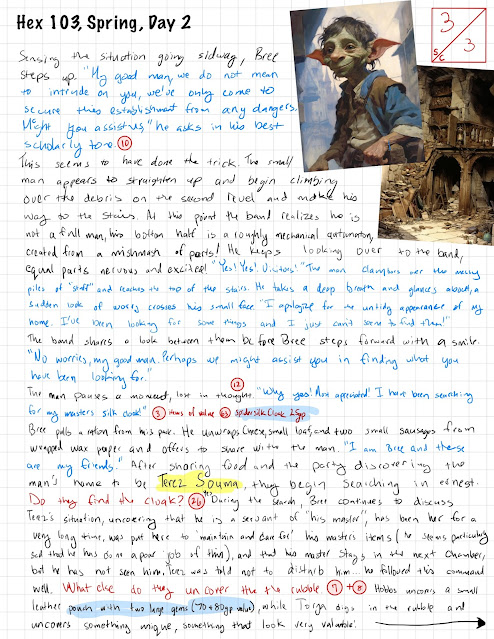 Hex 103, Spring, Day 2
3
S/C
3
Sensing the situation going sidway, Bree
steps up. "My good man, we do not mean
to intrude on you, we've only come to
secure this establishment from any dangers.
Might you assist us," he asks in his best
scholarly tone. 10
This seems to have done the trick. The small
man appears to straighten up and begin climbing
over the debris on the second level and make his
way to the stairs. At this point the band realizes he is
not a full man, his bottom half is a roughly mechanical automaton,
created from a mishmash of parts! He keeps looking over to the band,
equal parts nervous and excited! "Yes! Yes! Visitors!" The man clambers over the messy
piles of "stuff" and reaches the top of the stairs. He takes a deep breath and glances about, a
sudden look of worry crosses his small face. "I apologize for the untidy appearance of my
home. I've been looking for some things and I just can't seem to find them!"
The band shares a look between them before Bree steps forward with a smile.
"No worries, my good man. Perhaps we might assist you in finding what you
have been looking for."
12
The man pauses a moment, lost in thought. "Why yes! Most appreciated! I have been searching
for my masters silk cloak!" 3 items of value 63 spidersilk Cloak 25gp
Bree pulls a ration from his pack. He unwraps cheese, small loaf, and two small sausages from
wrapped wax paper and offers to share with the man. "I am Bree and these
are my friends." After sharing food and the party discovering the
man's home to be Terez Souma, they begin searching in earnest.
Do they find the cloak? 26 yes During the search, Bree continues to discuss
Terez's situation, uncovering that he is a servant of "his master", has been her for a
very long time, was put here to maintain and care for his masters items (he seems particularly
sad that he has done a poor job of this), and that his master stays in the next chamber,
but he has not seen him, Terez was told not to disturb him... he followed this command
well. What else do they uncover the the rubble 7 + 8 Hobbs uncovers a small
leather pouch with two large gems (70+80gp value), while Torga digs in the rubble and
uncovers something unique, something that look very valuable.